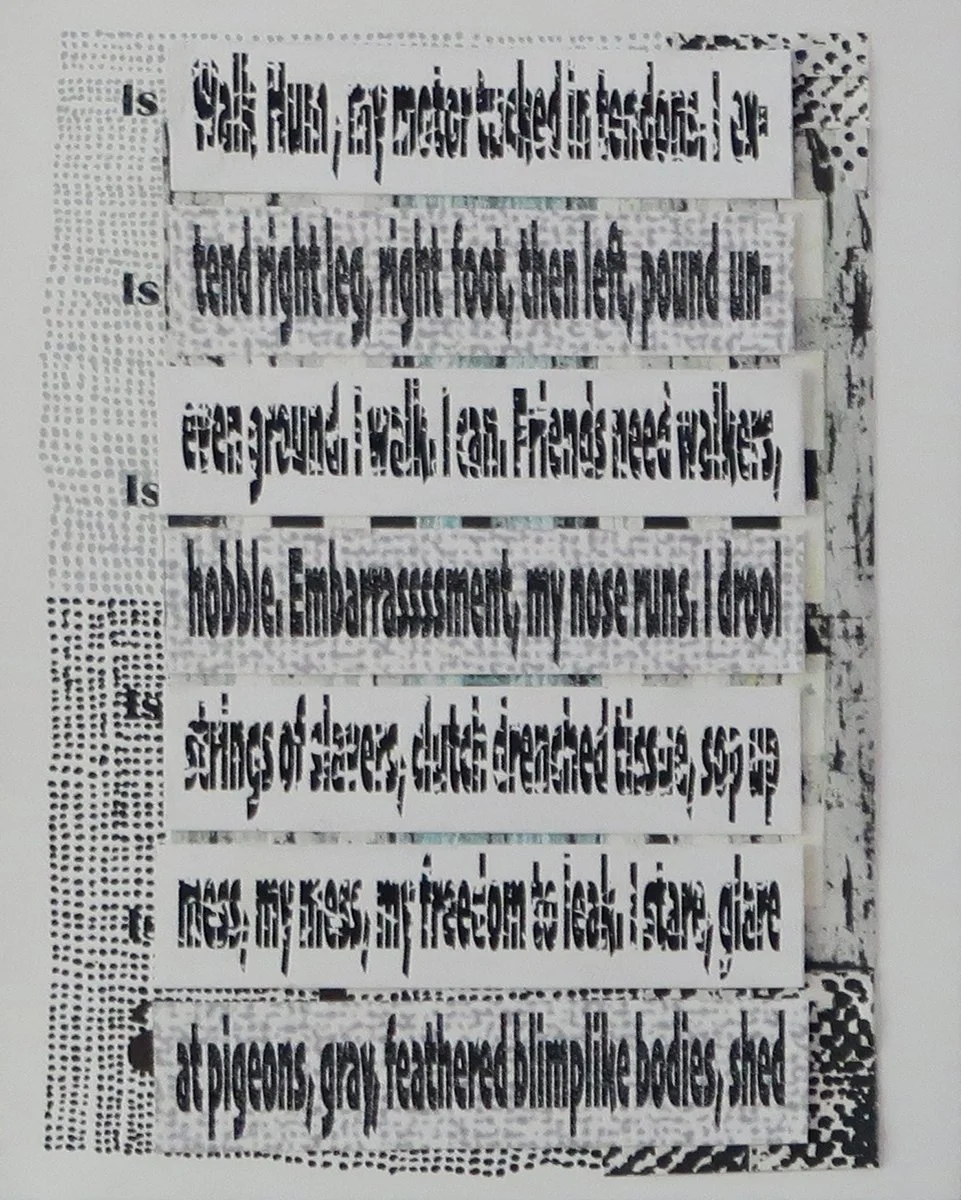 Is
Walk Hum, my motor tucked in tendons. I ex-
Is
tend right leg, right foot, then left, pound un-
even ground. I walk. I can. Friends need walkers,
Is
hobble. Embarrasssment, my nose runs. I drool
Is
strings of slavers, clutch drenched tissue, sop up
mess, my mess, my freedom to leak. I stare, glare
at pigeons, gray, feathered blimplike bodies, shed